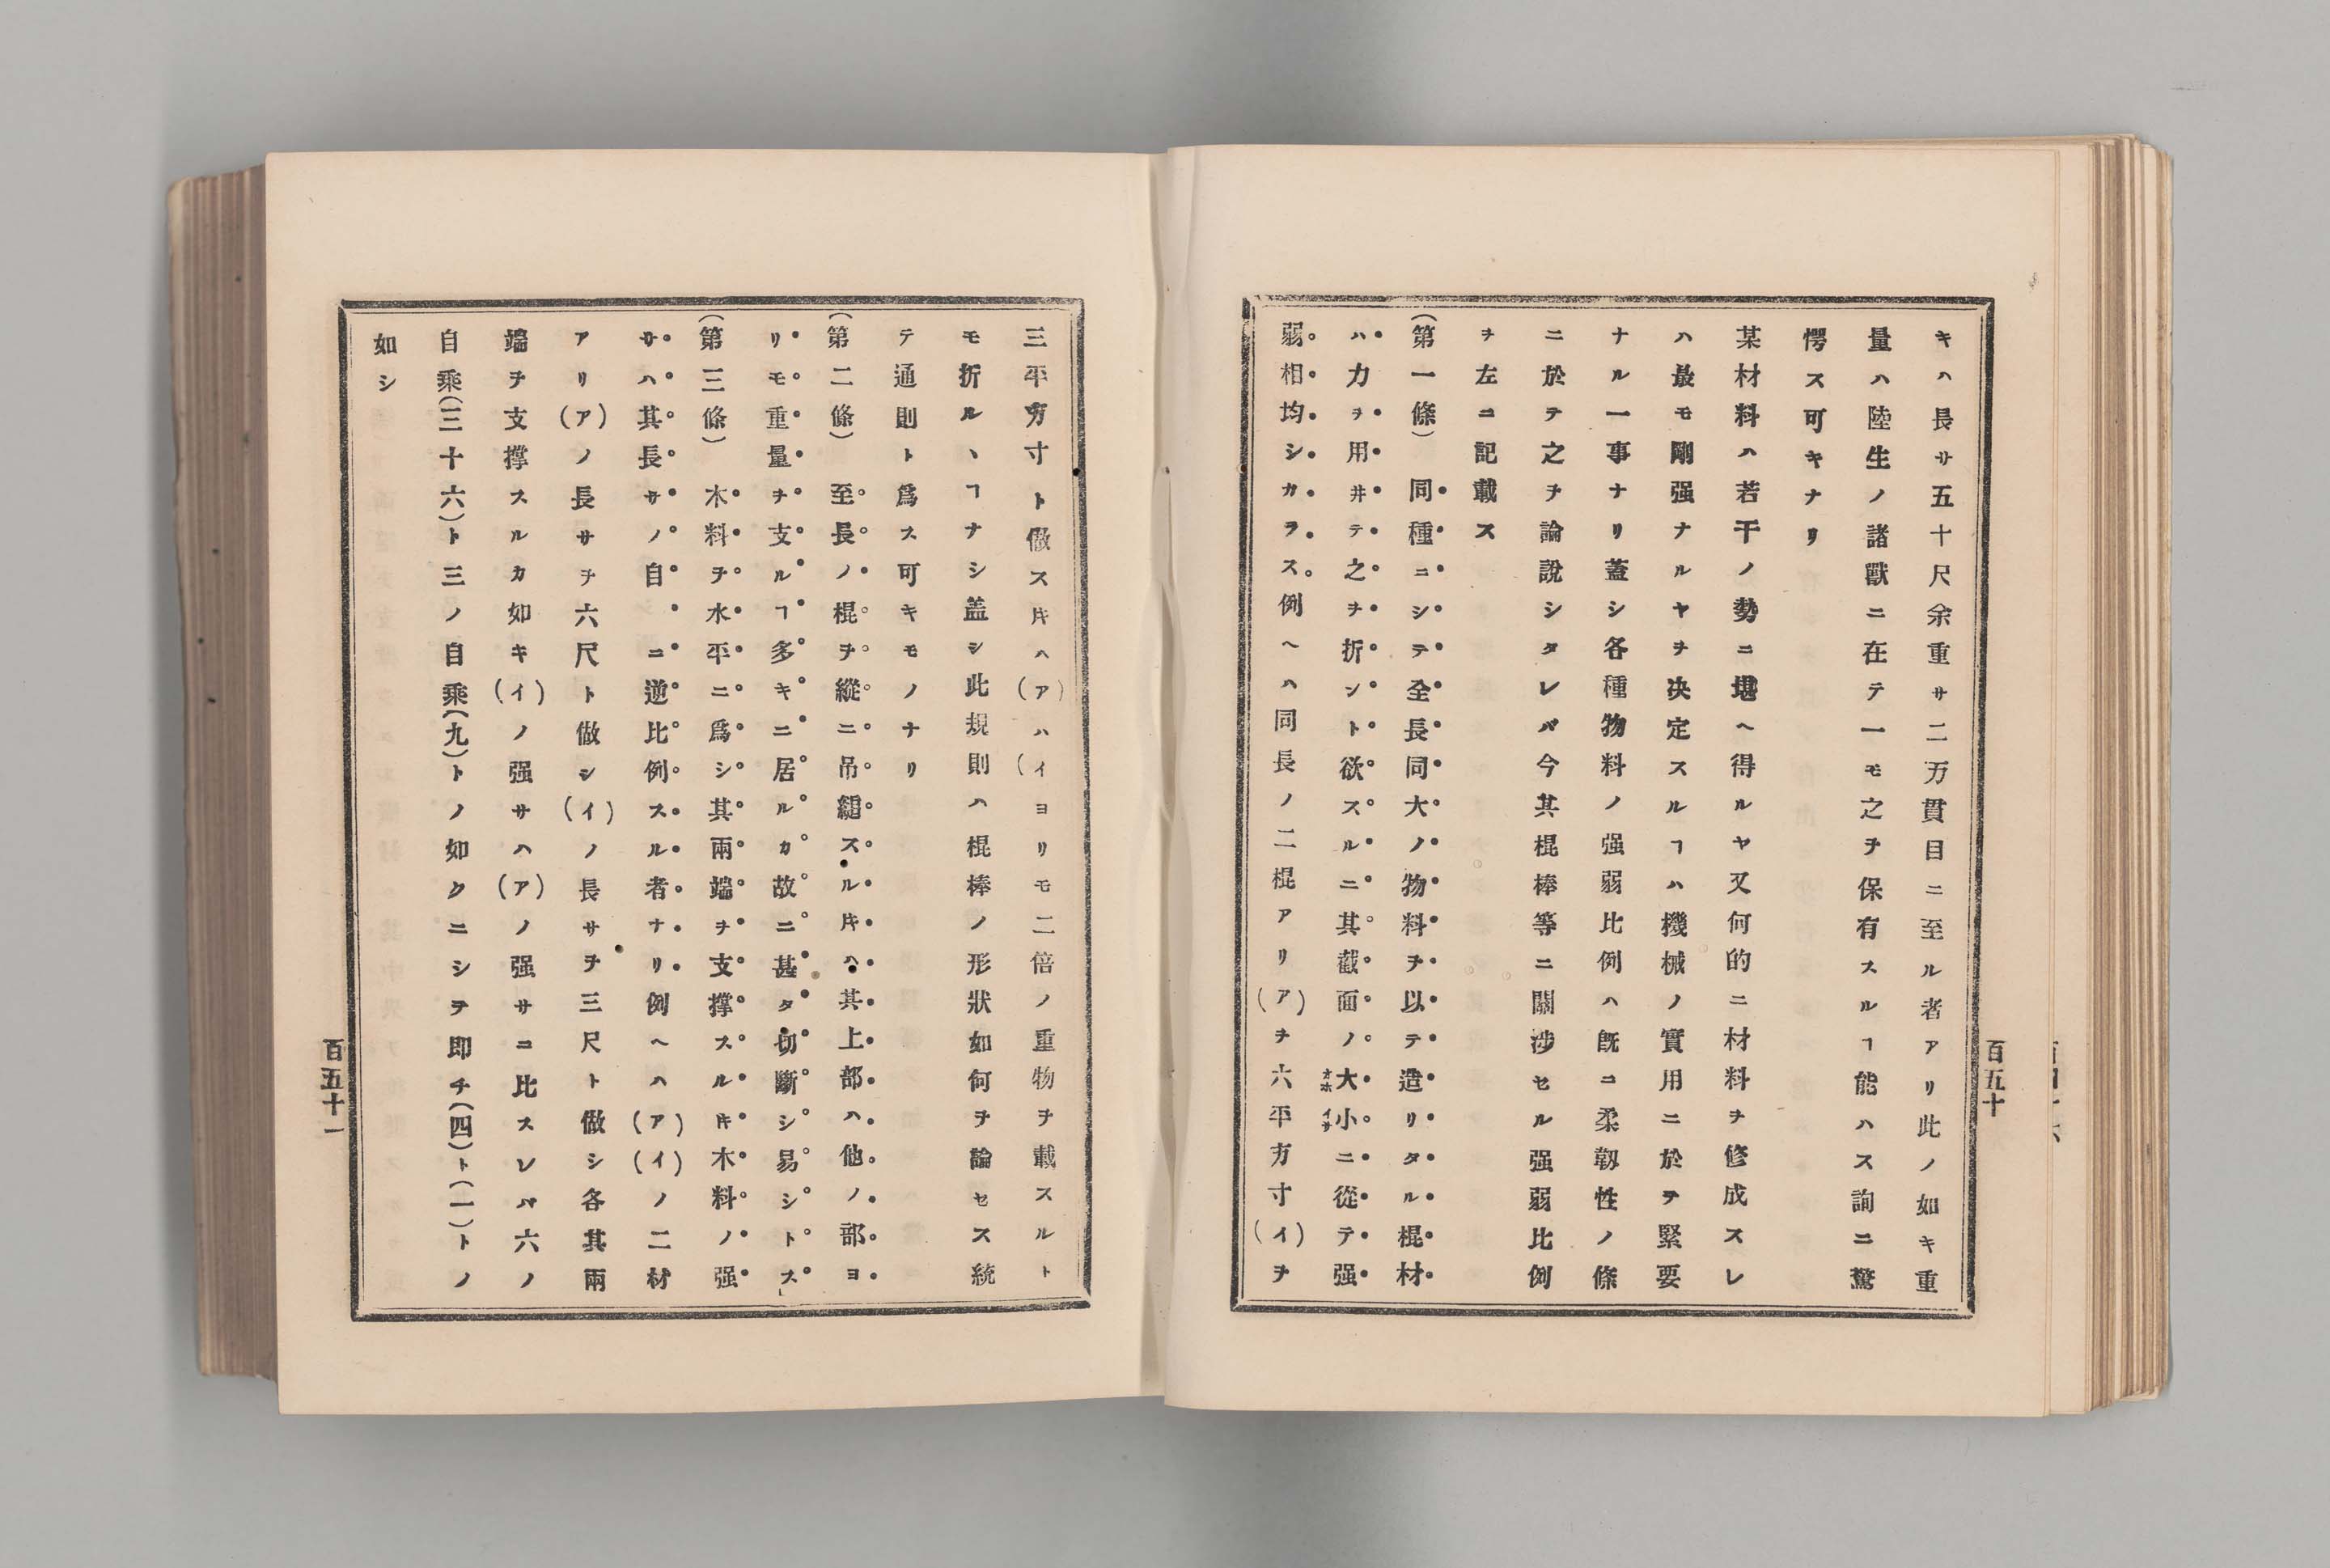 キハ長サ五十尺余重サ二万貫目ニ至ル者アリ此ノ如キ重
量ハ陸生ノ諸獸ニ在テ一モ之ヲ保有スルヿ能ハス詢ニ驚
愕ス可キナリ
某材料ハ若干ノ勢ニ堪ヘ得ルヤ又何的ニ材料ヲ修成スレ
ハ最モ剛强ナルヤヲ决定スルヿハ機械ノ實用ニ於ヲ緊要
ナル一事ナリ蓋シ各種物料ノ强弱比例ハ既ニ柔韌性ノ條
ニ於テ之ヲ論說シタレバ今其棍棒等ニ關涉セル强弱比例
ヲ左ニ記載ス
(第一條) 同種ニシテ全長同大ノ物料ヲ以テ造リタル棍材
ハ力ヲ用井テ之ヲ折ント欲スルニ其截面ノ大小ニ從テ强
オホイサ
弱相均シカラス例ヘハ同長ノ二棍アリ(ア)ヲ六平方寸(イ)ヲ
百五十
三平方寸ト倣ス𪜈ハ(ア)ハ(イヨリモ二倍ノ重物ヲ載スルト
モ折ルヽヿナシ盖シ此規則ハ棍棒ノ形狀如何ヲ論セス統
テ通則ト爲ス可キモノナリ
(第二條) 至長ノ棍ヲ縱ニ吊繩スル𪜈ハ其上部ハ他ノ部ヨ
リモ重量ヲ支ルヿ多キニ居ルカ故ニ甚タ切斷シ易シトス
(第三條) 木料ヲ水平ニ爲シ其兩端ヲ支撑スル𪜈木料ノ强
サハ其長サノ自 ニ逆比例スル者ナリ例ヘハ(ア)(イ)ノ二材
アリ(ア)ノ長サヲ六尺ト倣シ(イ)ノ長サヲ三尺ト倣シ各其兩
端ヲ支撑スルカ如キ(イ)ノ强サハ(ア)ノ强サニ比スレバ六ノ
自乘(三十六)ト三ノ自乘(九)トノ如クニシヲ即チ(四)ト(一)トノ
如シ
百五十一